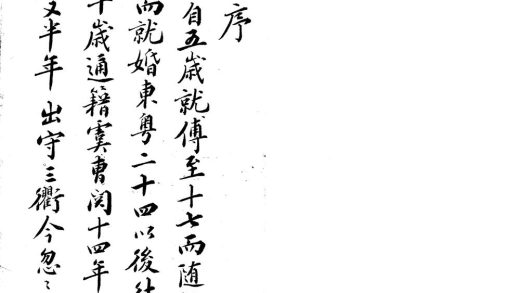 序
自五歲就傅至十七而随
而就婚東粤二十四以後
十歲通籍虞曹閲十四年
又半年出守三衢今忽〻